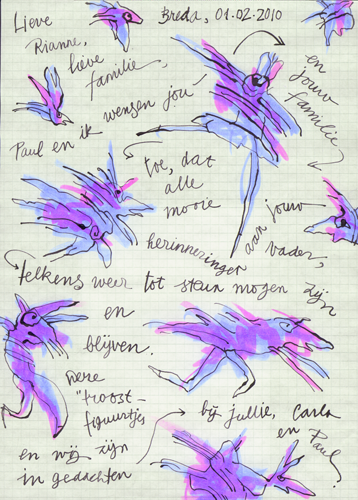 Breda, 01.02.2010
Lieve
Rianne,
lieve
familie,
Paul en ik
wensen jou
en
jouw
familie
toe, dat
alle
mooie
herinneringen
aan jouw
vader,
telkens weer tot steun mogen zijn
en
blijven.
Deze
"troost-
figuurtjes
en wij zijn
in gedachten
bij jullie, Carla
en Paul.